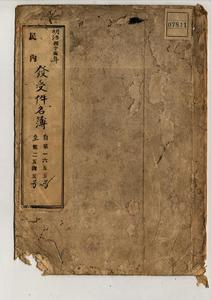 07811
明治四十五年
民内
發受件名簿
自第一六五号
至第二五四五号